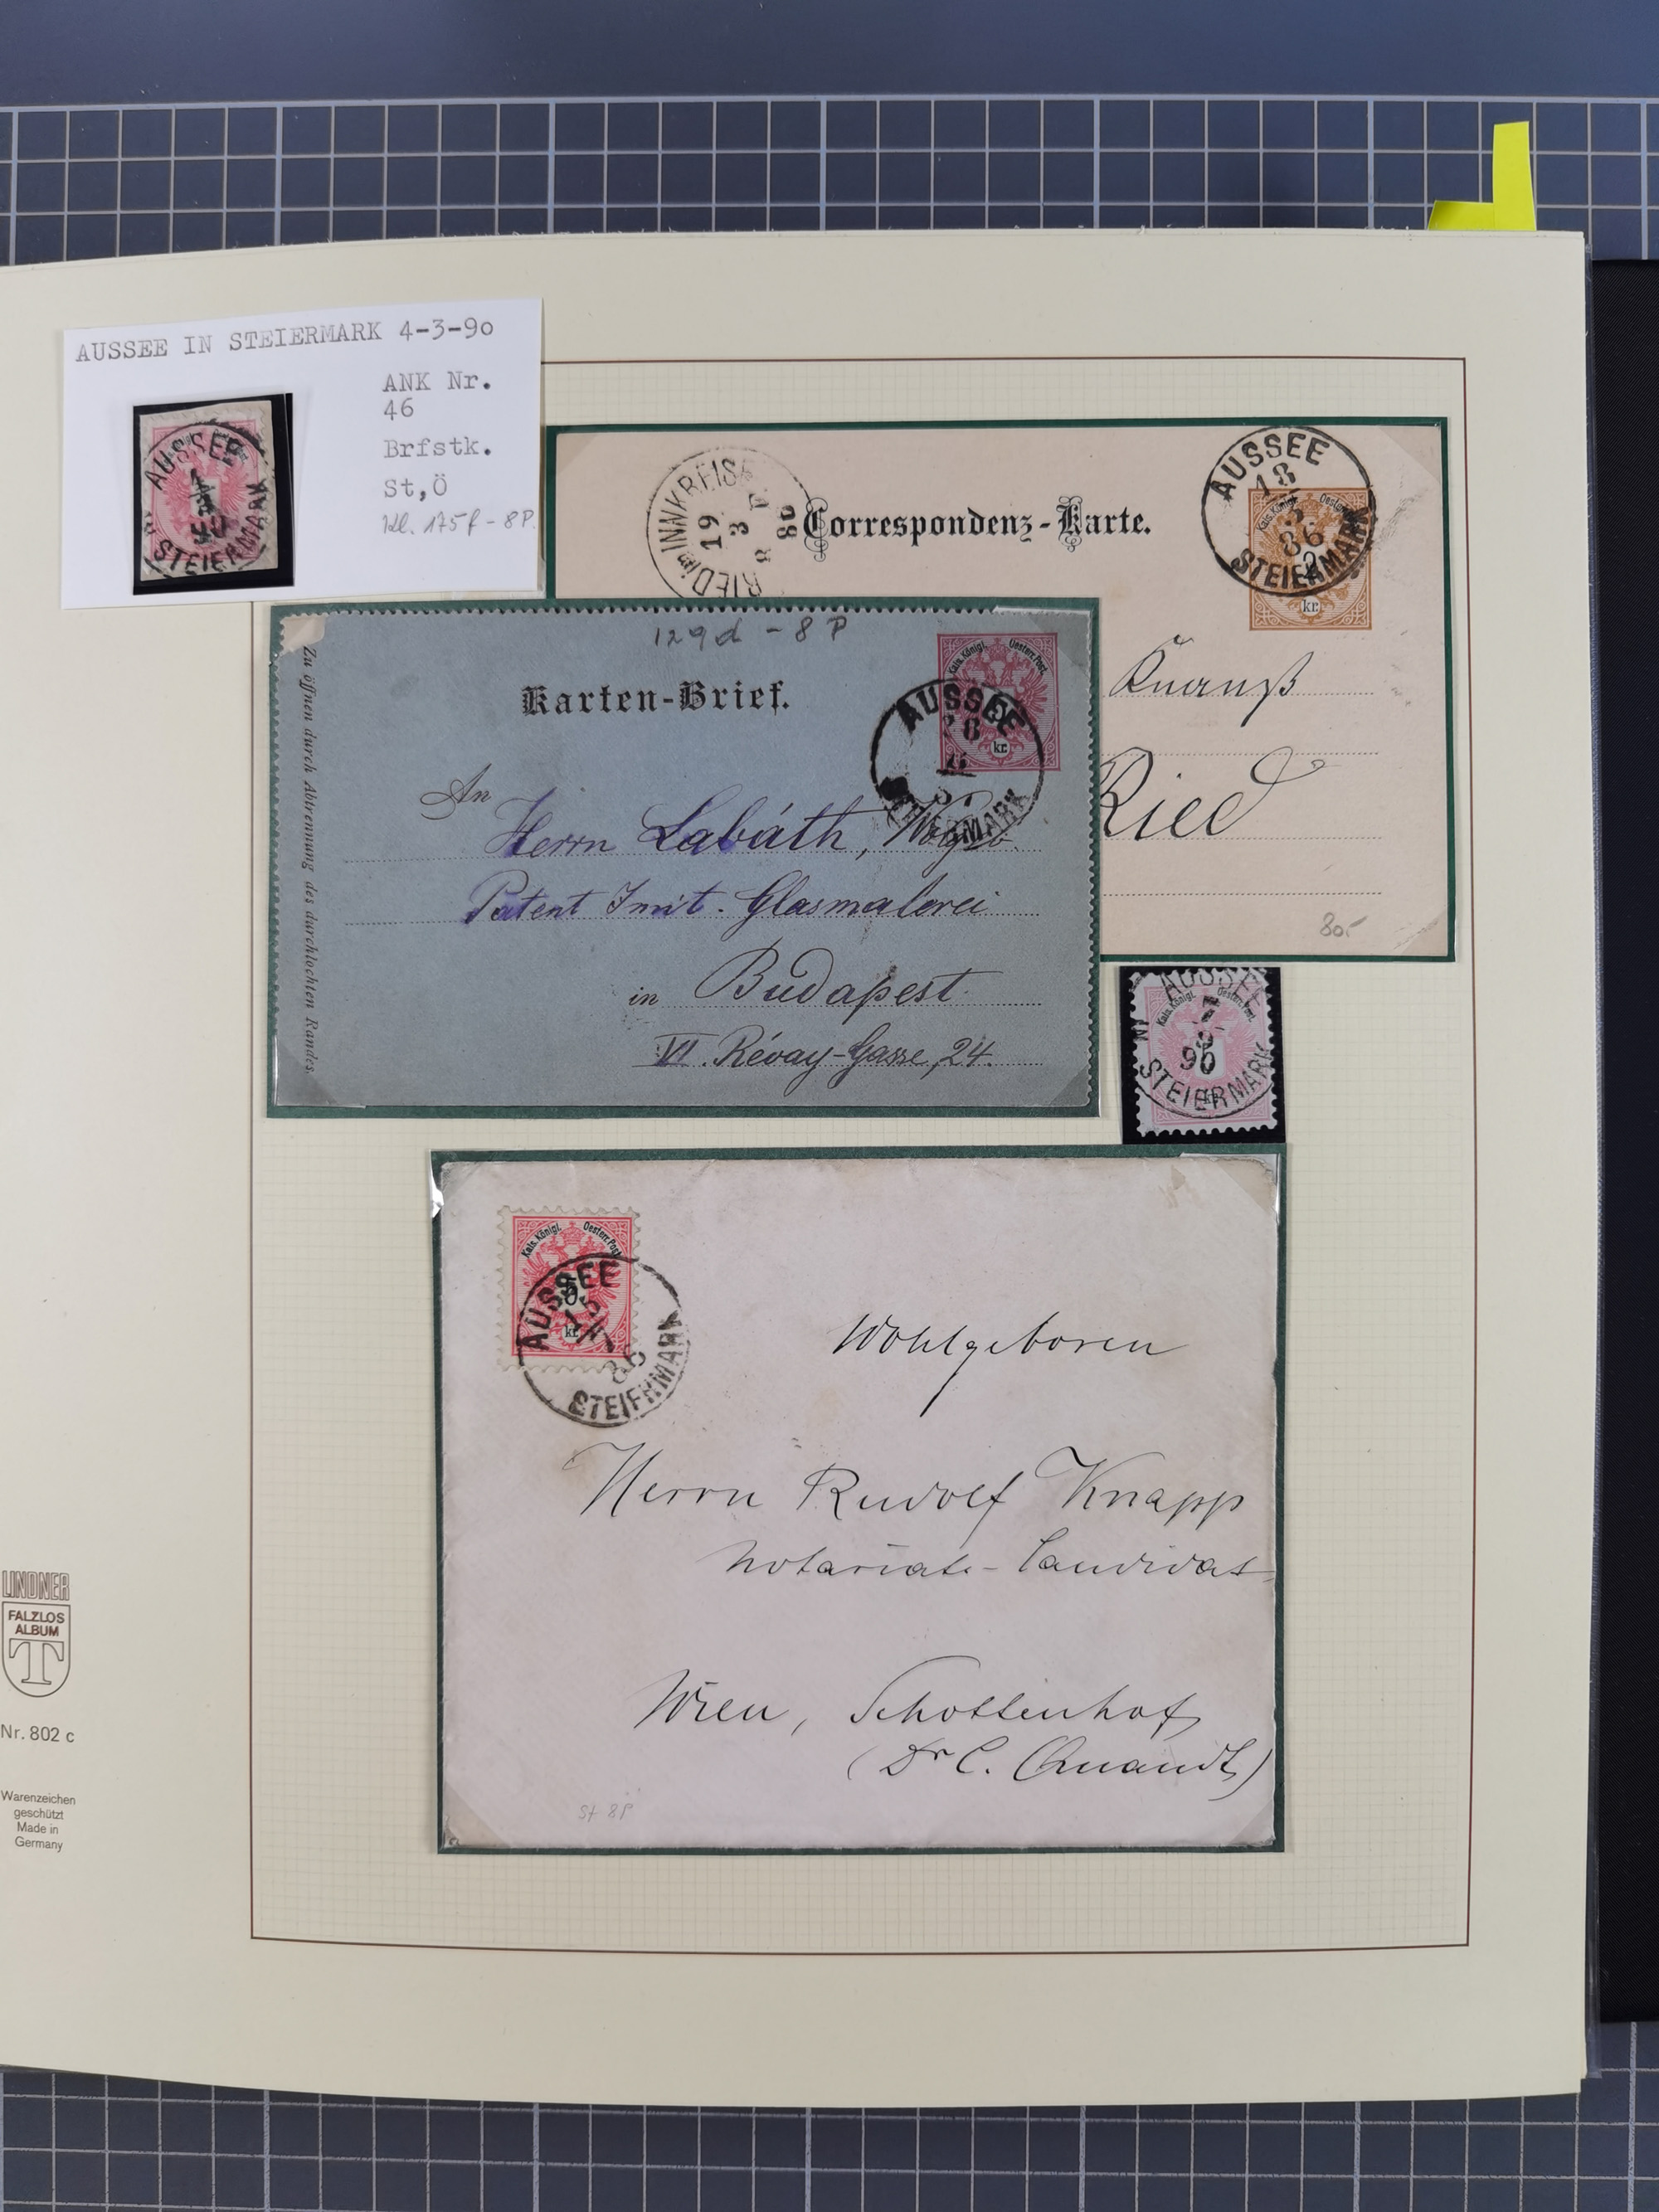 AUSSEE IN STEIERMARK 4-3-90
ANK Nr.
46
Brfstk.
St,Ö
Kl. 175f - 8P.
AUSSEE
4
3
90
STEIERMARK
RIED im INNKREISE
19
3
8
86
Correspondenz-Karte.
AUSSEE
18
3
86
STEIERMARK
Kais. Königl. Oesterr. Post
2
kr.
Ried
80.-
129d - 8P
Karten-Brief.
Zu öffnen durch Abtrennung des durchlochten Randes.
Kais. Königl. Oesterr. Post
kr.
AUSSEE
28
STEIERMARK
An
Herrn Labáth,
Patent Imit. Glasmalerei
in Budapest
VI. Révay-Gasse, 24.
AUSSEE
Kais. Königl. Oesterr. Post.
IN
90
STEIERMARK
Kais. Königl. Oesterr. Post
5
kr.
AUSSEE
15
86
STEIERMARK
Wohlgeboren
Herrn Rudolf Knapp
Notariats-Candidat
Wien, Schottenhof
(Dr C.
St 8P
LINDNER
FALZLOS
ALBUM
T
Nr. 802 c
Warenzeichen
geschützt
Made in
Germany